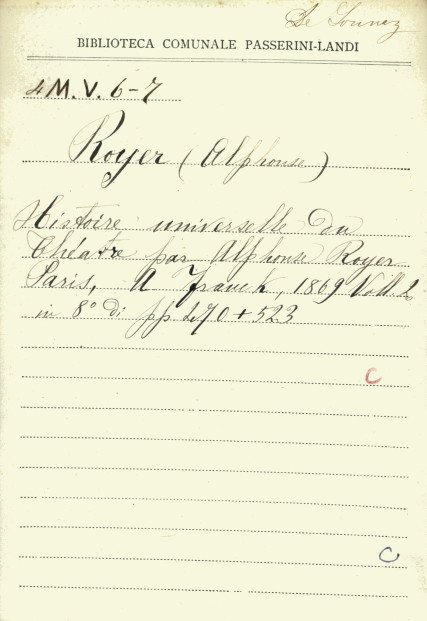 De
BIBLIOTECA COMUNALE PASSERINI-LANDI
4 M. V. 6-7
Royer (Alphonse)
Histoire universelle du
Théatre par Alphonse Royer
Paris, A Franck, 1869 Voll. 2
in 8° di pp 470 + 523
C
C